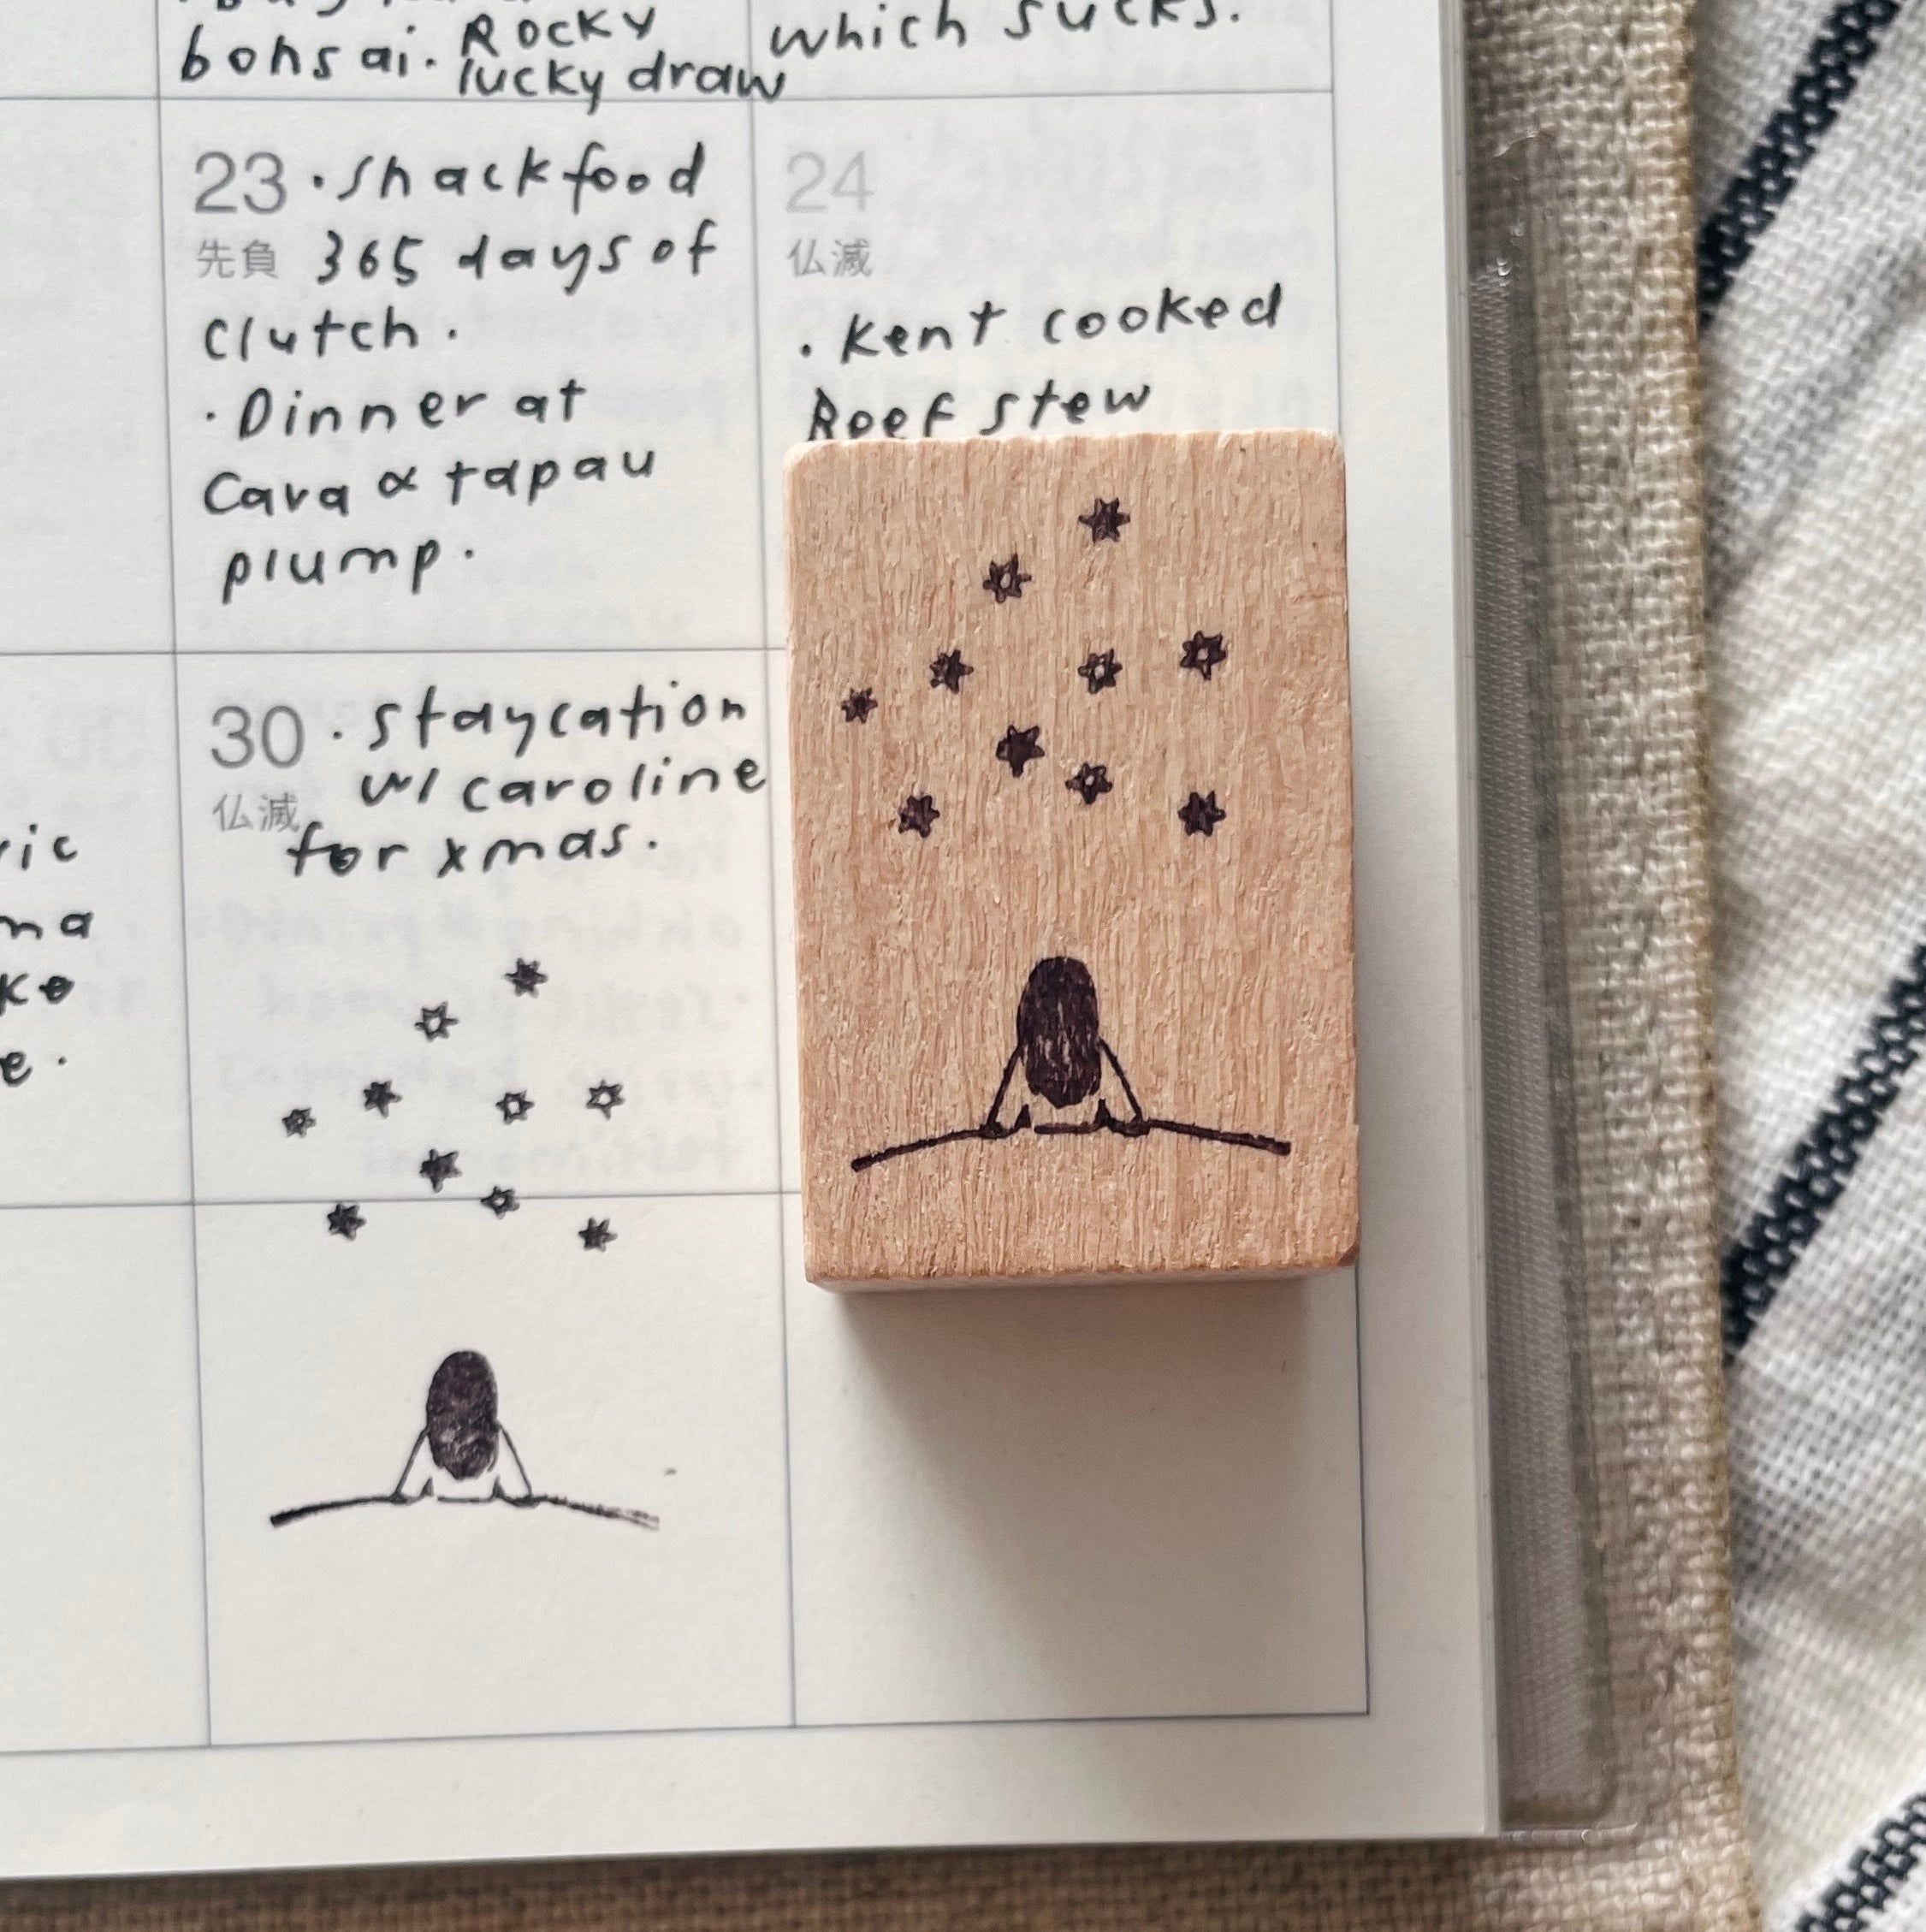 bonsai. Rocky
lucky draw
which sucks.
23 · snack food
先負 365 days of
clutch.
· Dinner at
Cava & tapau
plump.
24
仏滅
· Kent cooked
Beef stew
30 · staycation
仏滅 w/ caroline
for xmas.